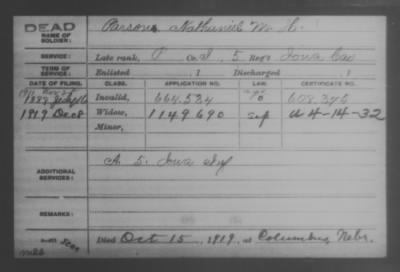 DEAD
NAME OF SOLDIER:
Parsons Nathaniel M. H.
SERVICE:
Late rank, P Co. I, 5 Reg't Iowa Cav
TERM OF SERVICE:
Enlisted , 1 Discharged , 1
DATE OF FILING. CLASS. APPLICATION NO. LAW. CERTIFICATE NO.
1888 Invalid, 664.534 608.345
1919 Dec 8 Widow, 1149690 Sep d 4-14-32
Minor,
ADDITIONAL SERVICES:
A. 5. Iowa Inf
REMARKS:
Died Oct 15, 1919, at Columbus Nebr.